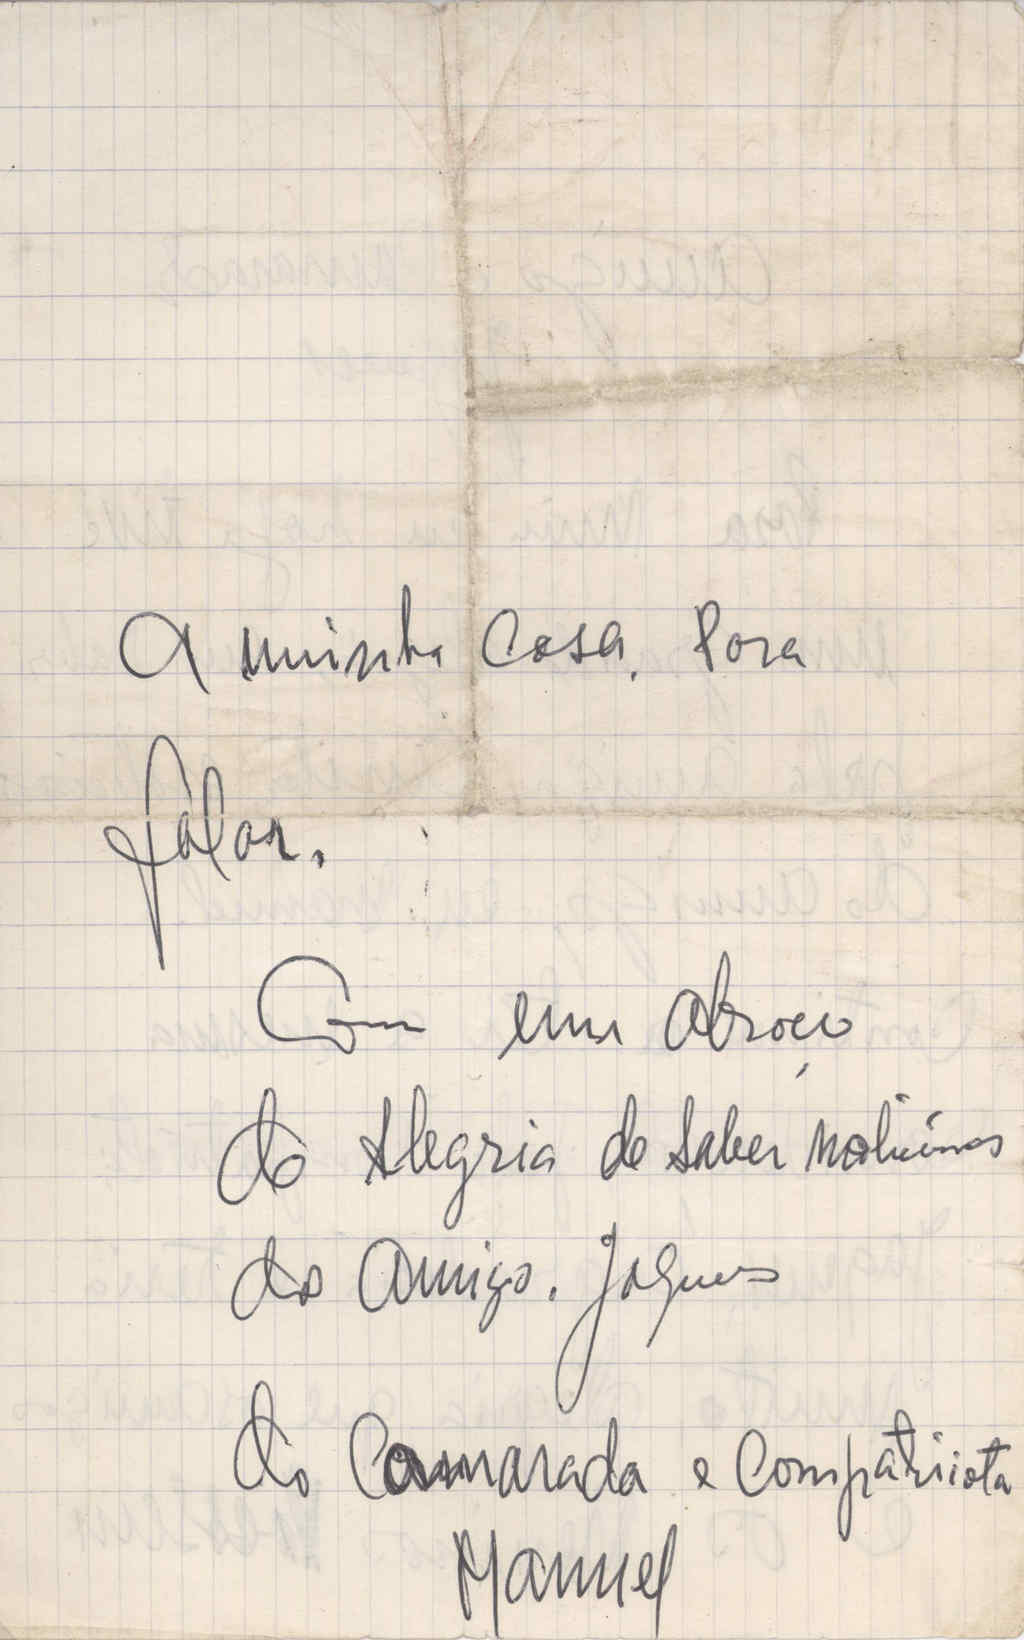 A minha Casa. Para
falar.
Com um abraço
de Alegria de saber notícias
do Amigo. Jaques
do Camarada e Compatriota
Manuel